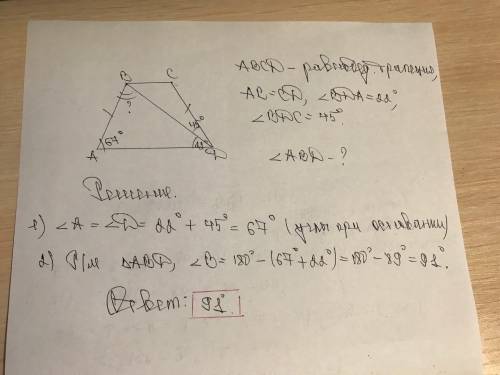 ABCD - равнобед. трапеция,
AB=CD, ∠BDA=22°,
∠BDC=45°.
∠ABD-?
B C
?
45°
A 67° 22° D
Решение.
1) ∠A=∠D=22°+45°=67° (углы при основании)
2) Р/м ΔABD, ∠B=180°-(67°+22°)=180°-89°=91°.
Ответ: 91°.